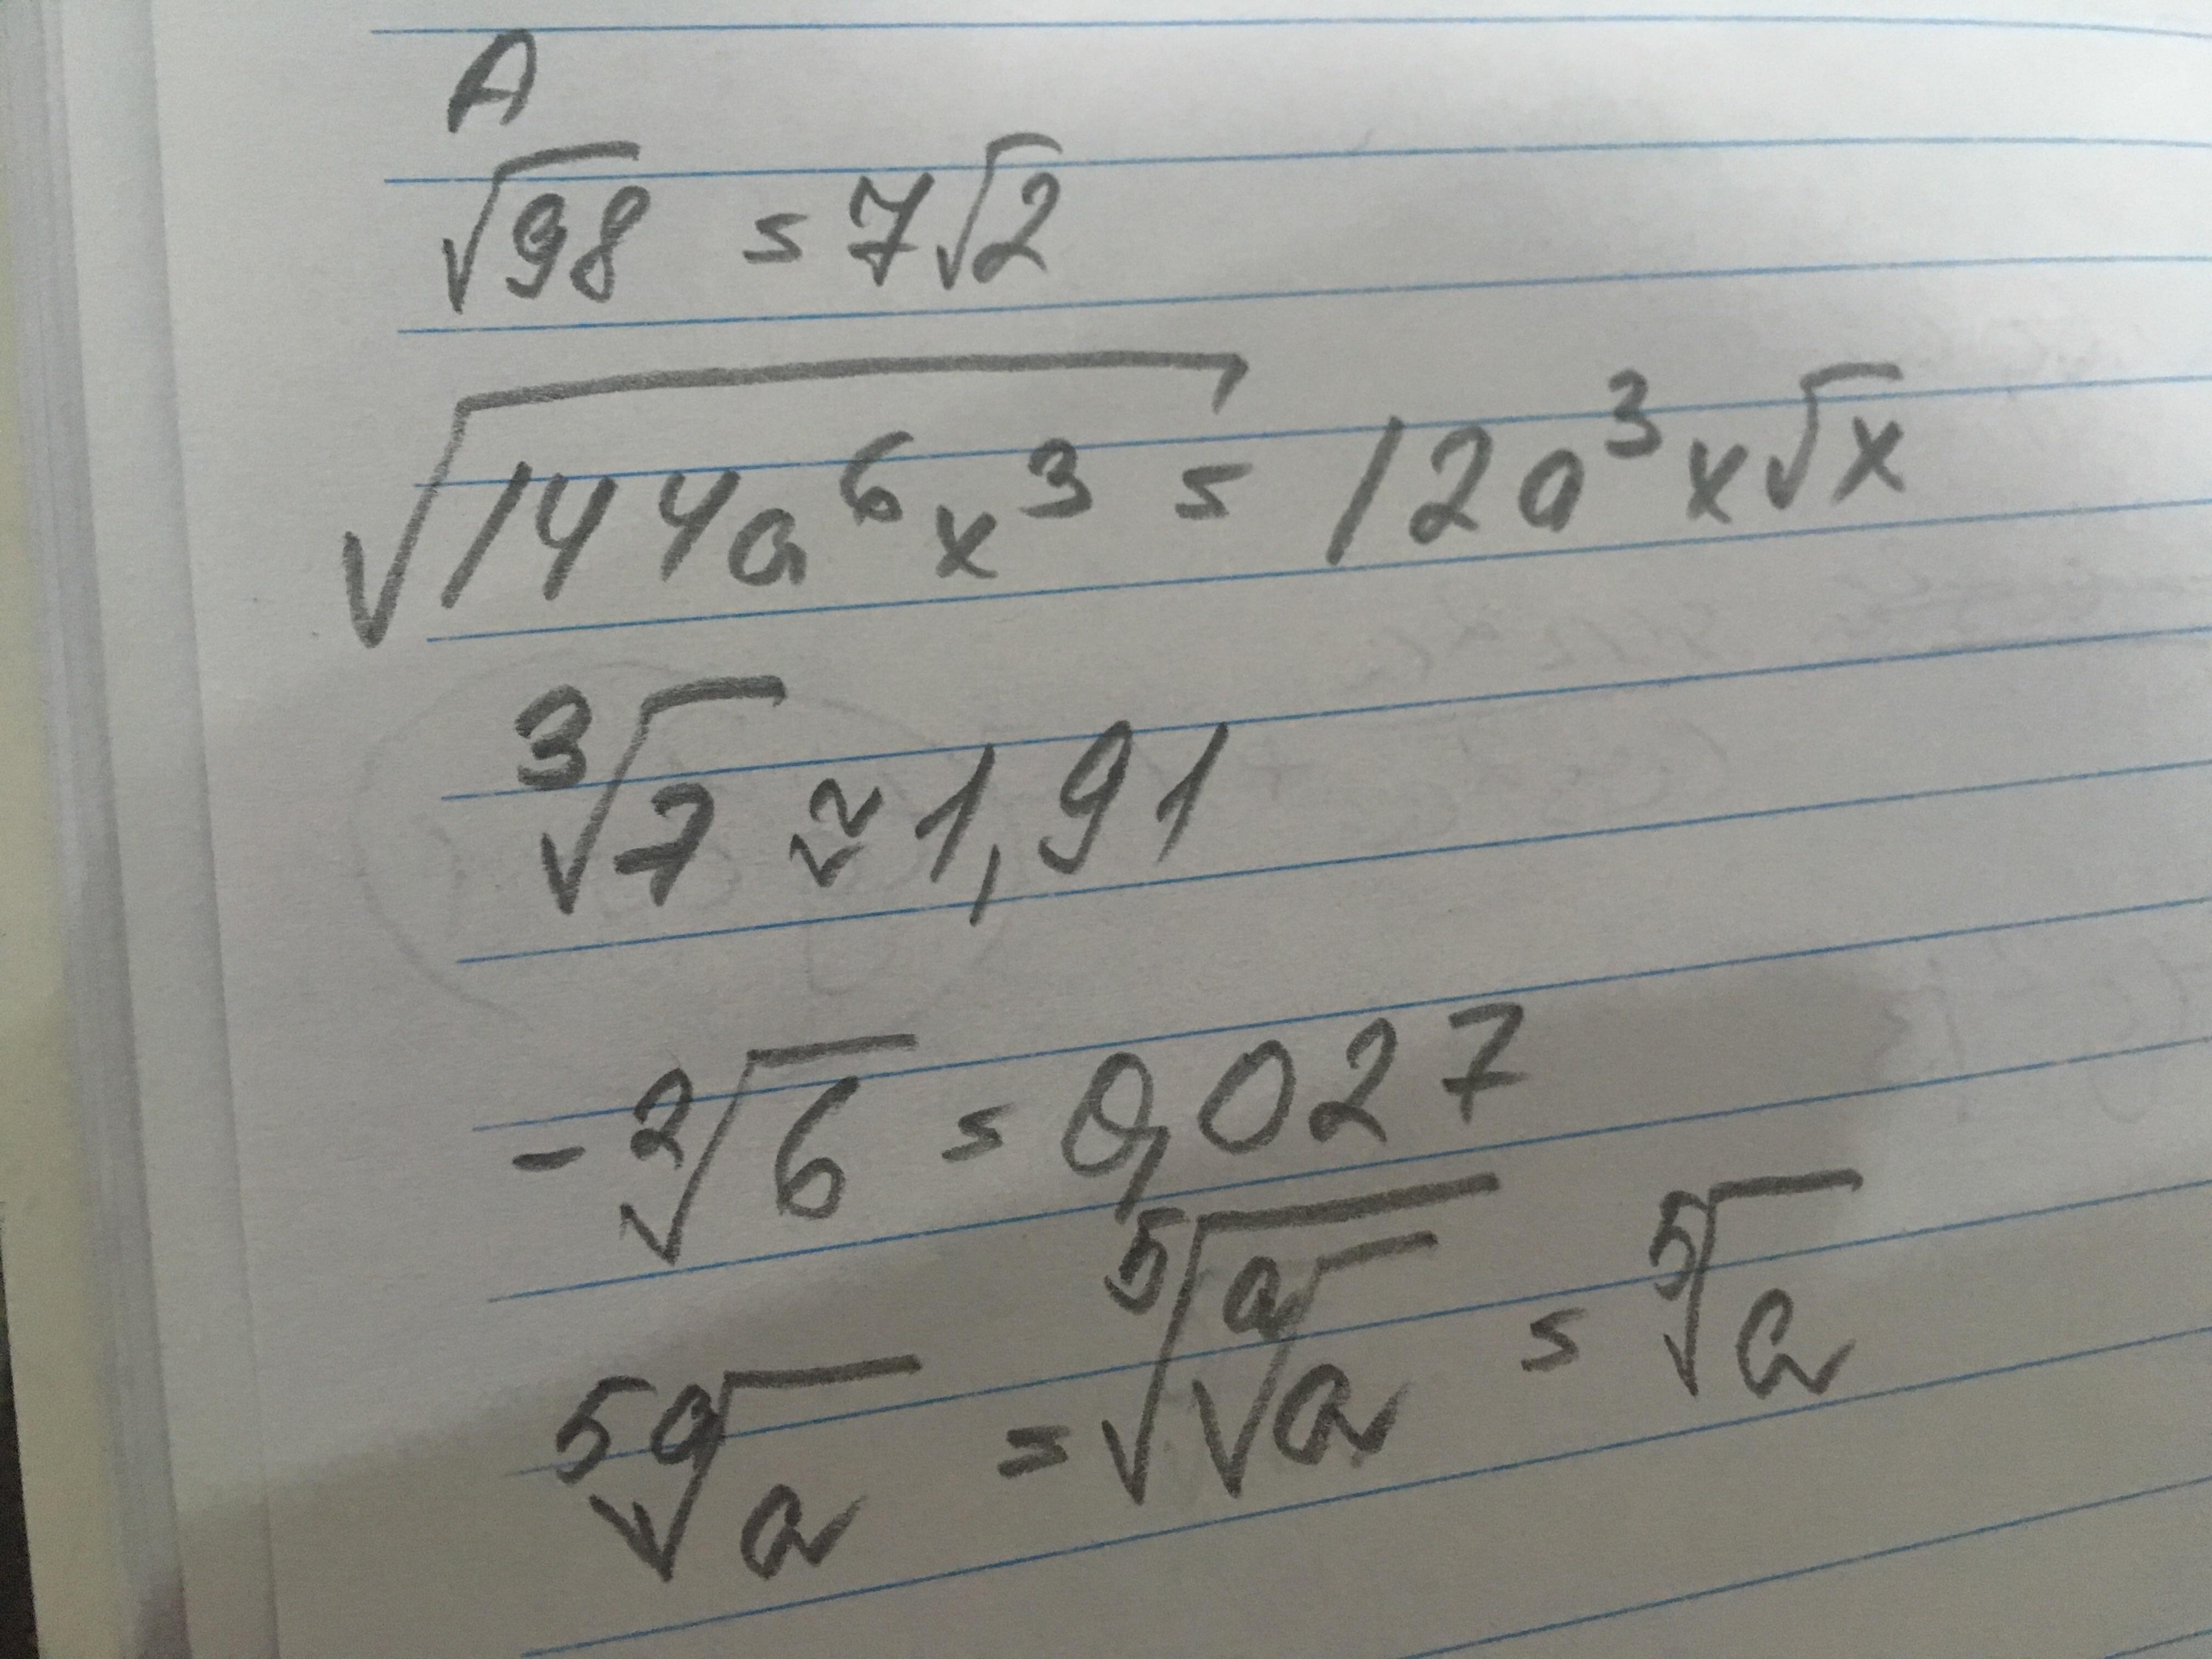 A
√98 = 7√2
√144a⁶x³ = 12a³x√x
³√7 ≈ 1,91
- ²√6 = 0,027
⁵ᵃ√a = ⁵√ᵃ√a = ⁵√a